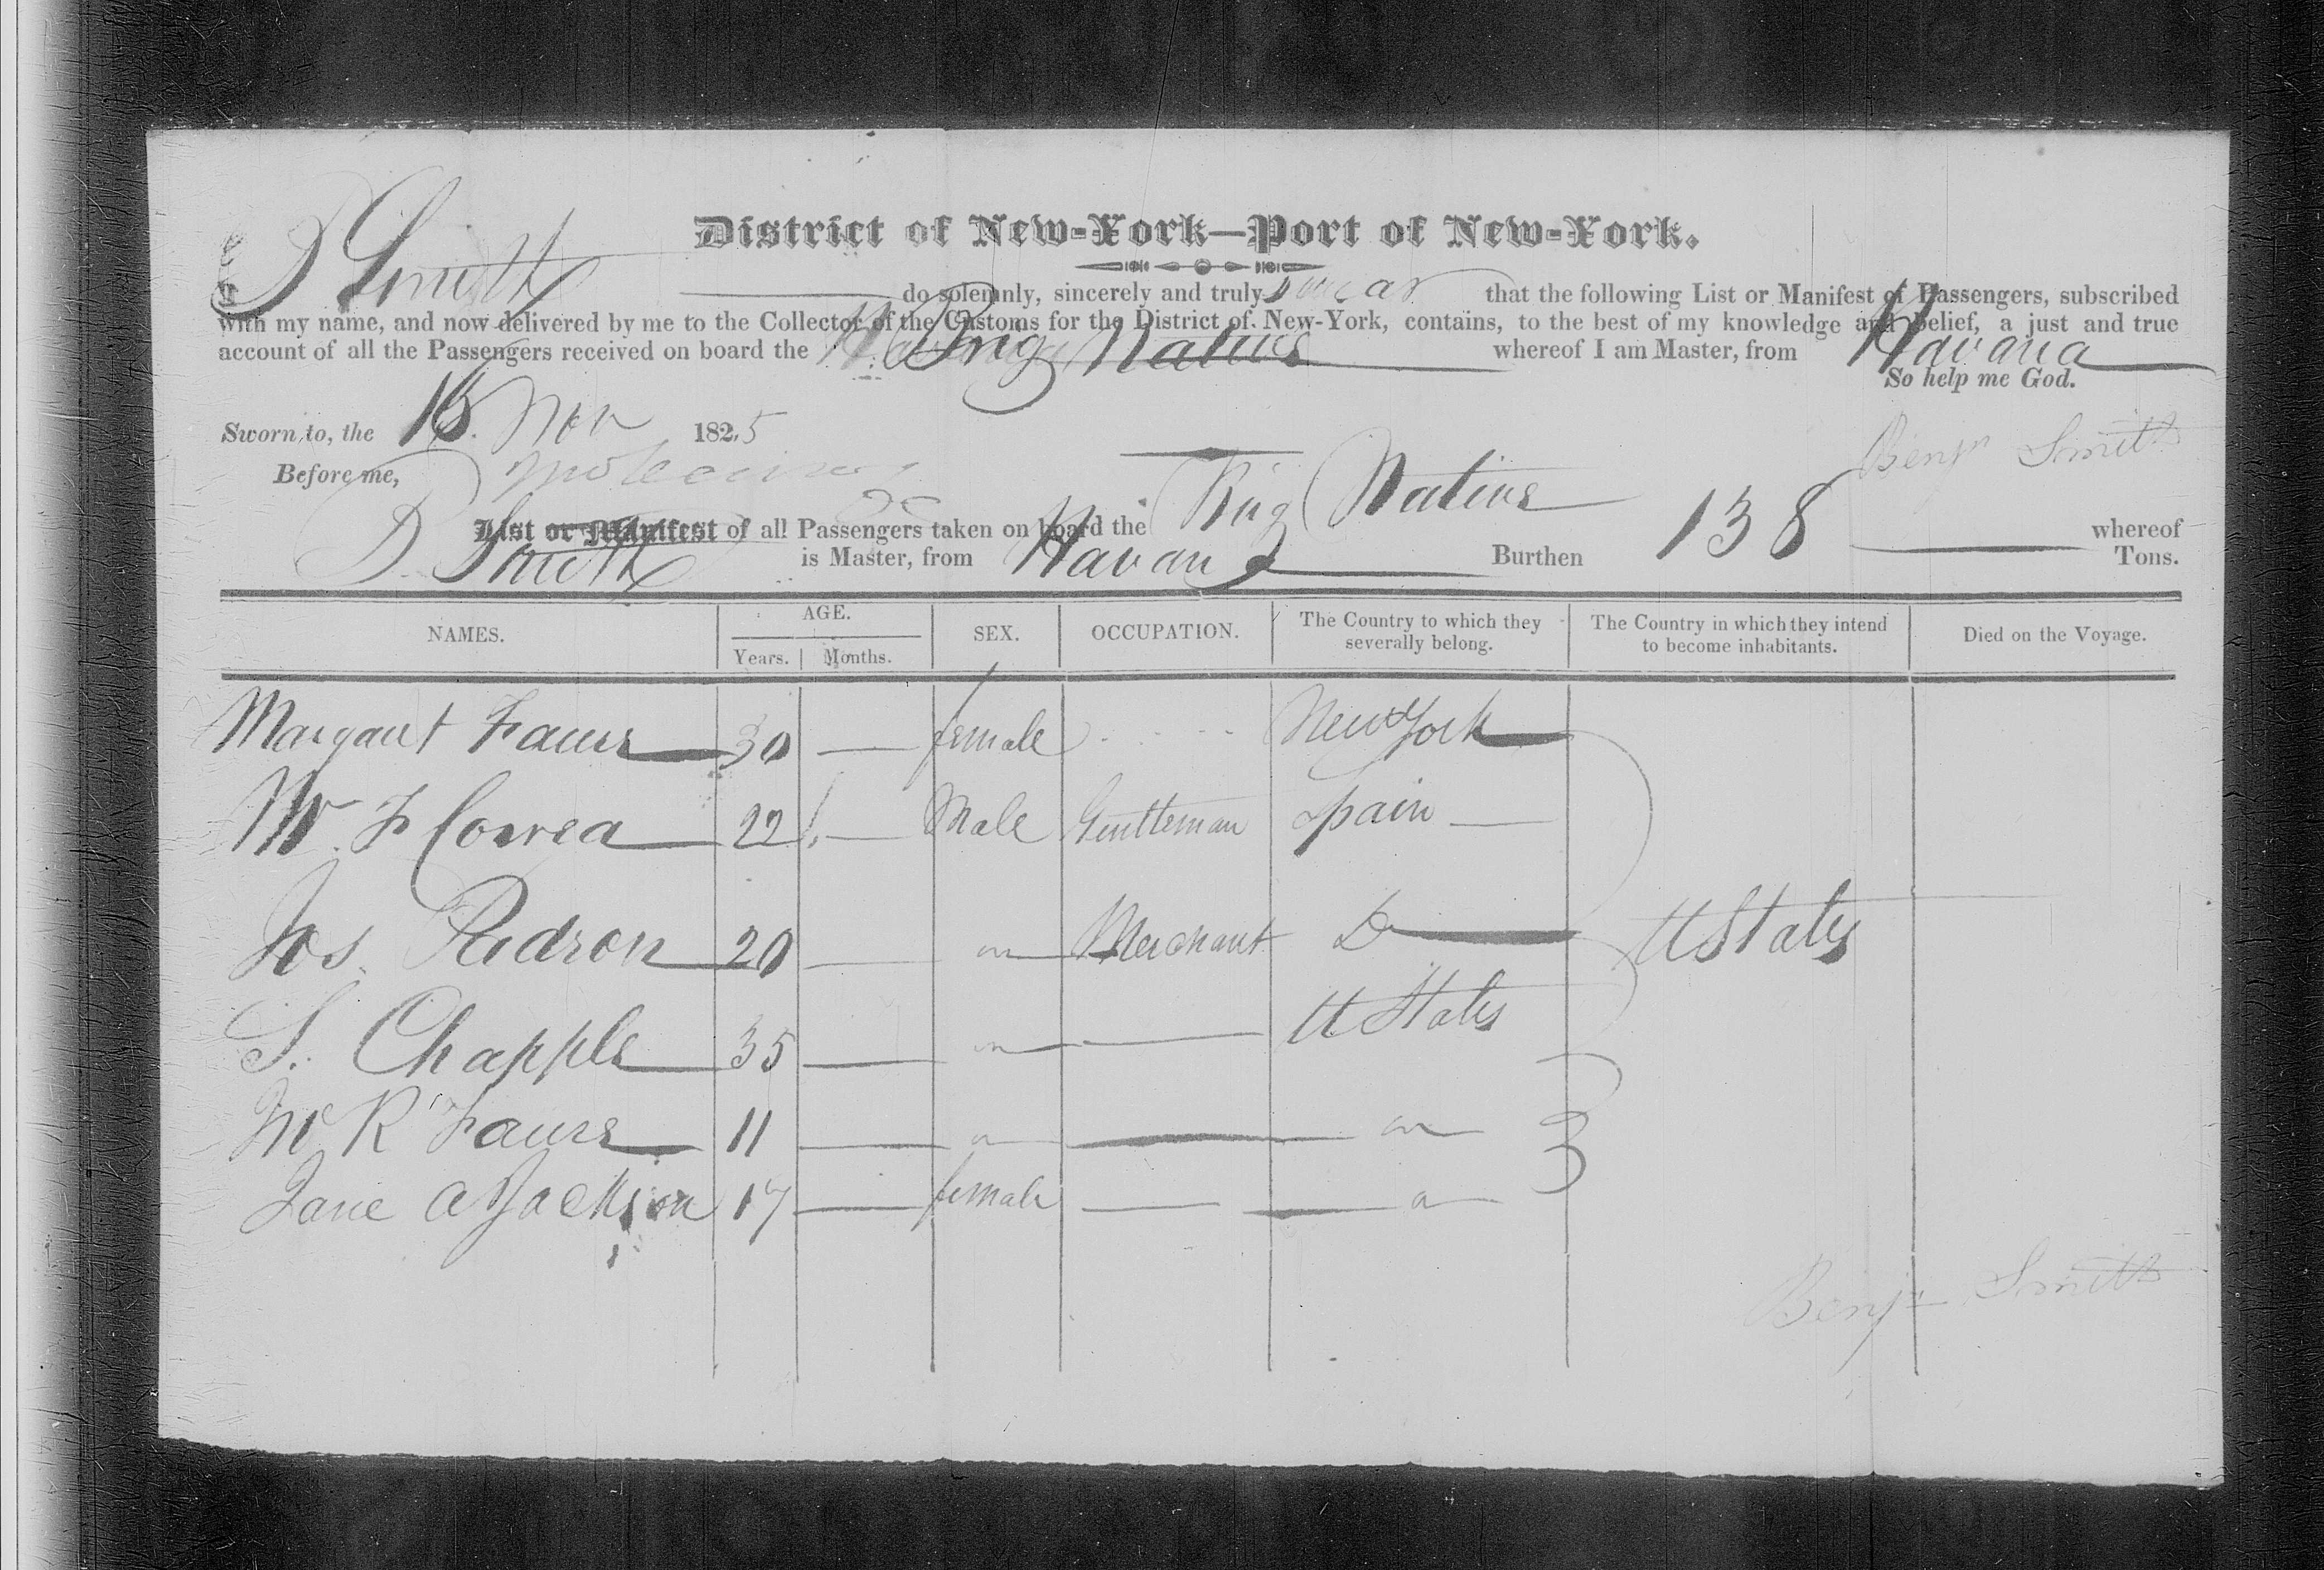 District of New-York—Port of New-York.
I, B Smith do solemnly, sincerely and truly swear that the following List or Manifest of Passengers, subscribed
with my name, and now delivered by me to the Collector of the Customs for the District of New-York, contains, to the best of my knowledge and belief, a just and true
account of all the Passengers received on board the Brig Native whereof I am Master, from Havana
So help me God.
Sworn to, the 16 Nov 1825
Benjn Smith
Before me,
List or Manifest of all Passengers taken on board the Brig Native whereof
B. Smith is Master, from Havana Burthen 138 Tons.
NAMES. AGE. Years. Months. SEX. OCCUPATION. The Country to which they severally belong. The Country in which they intend to become inhabitants. Died on the Voyage.
Margaret Faurs 30 — female New York
Mr. F Correa 22 — Male Gentleman Spain —
Jos. Padron 20 — Merchant Do U States
S. Chapple 35 — U States
R Faurs 11 —
Jane A Jackson 17 — female —
Benjn Smith